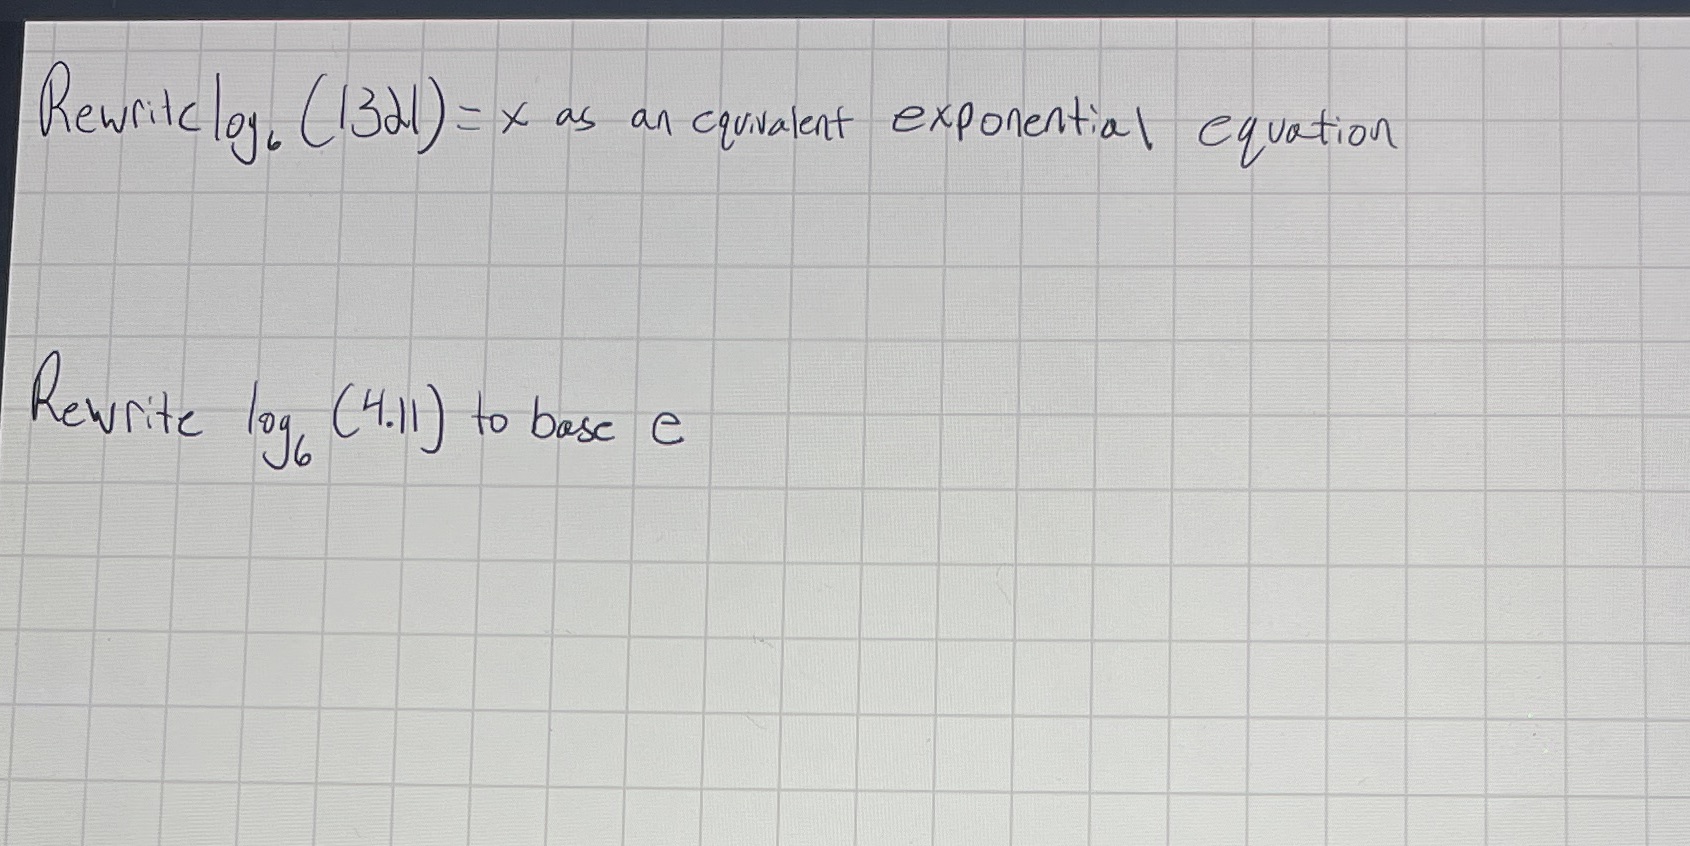 Rewrite log₆ (1321) = x as an equivalent exponential equation
Rewrite log₆ (4.11) to base e